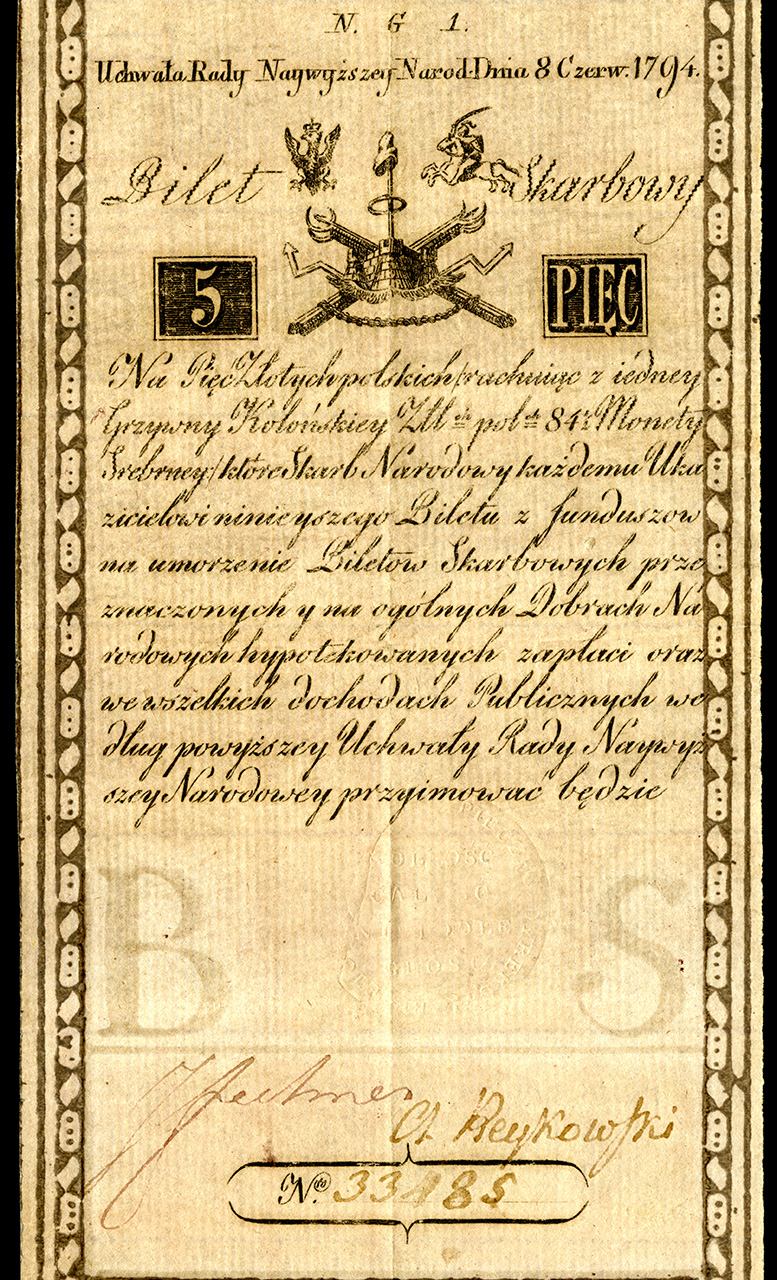 N. G 1.
Uchwała Rady Naywyższey Narod. Dnia 8 Czerw. 1794.
Bilet Skarbowy
5 PIĘC
Na Pięc Złotych polskich / rachuiąc z iedney
Grzywny Kolońskiey Zll ch pol ch 84 1/4 Monety
Srebrney / które Skarb Narodowy każdemu Uka
zicielowi ninieyszego Biletu z funduszow
na umorzenie Biletow Skarbowych prze
znaczonych y na ogólnych Dobrach Na
rodowych hypotekowanych zapłaci oraz
we wszelkich dochodach Publicznych we
dług powyższey Uchwały Rady Naywyż
szey Narodowey przyimować będzie
B S
WOLNOSC
CAŁOSC
A. Reykowski
No 33485